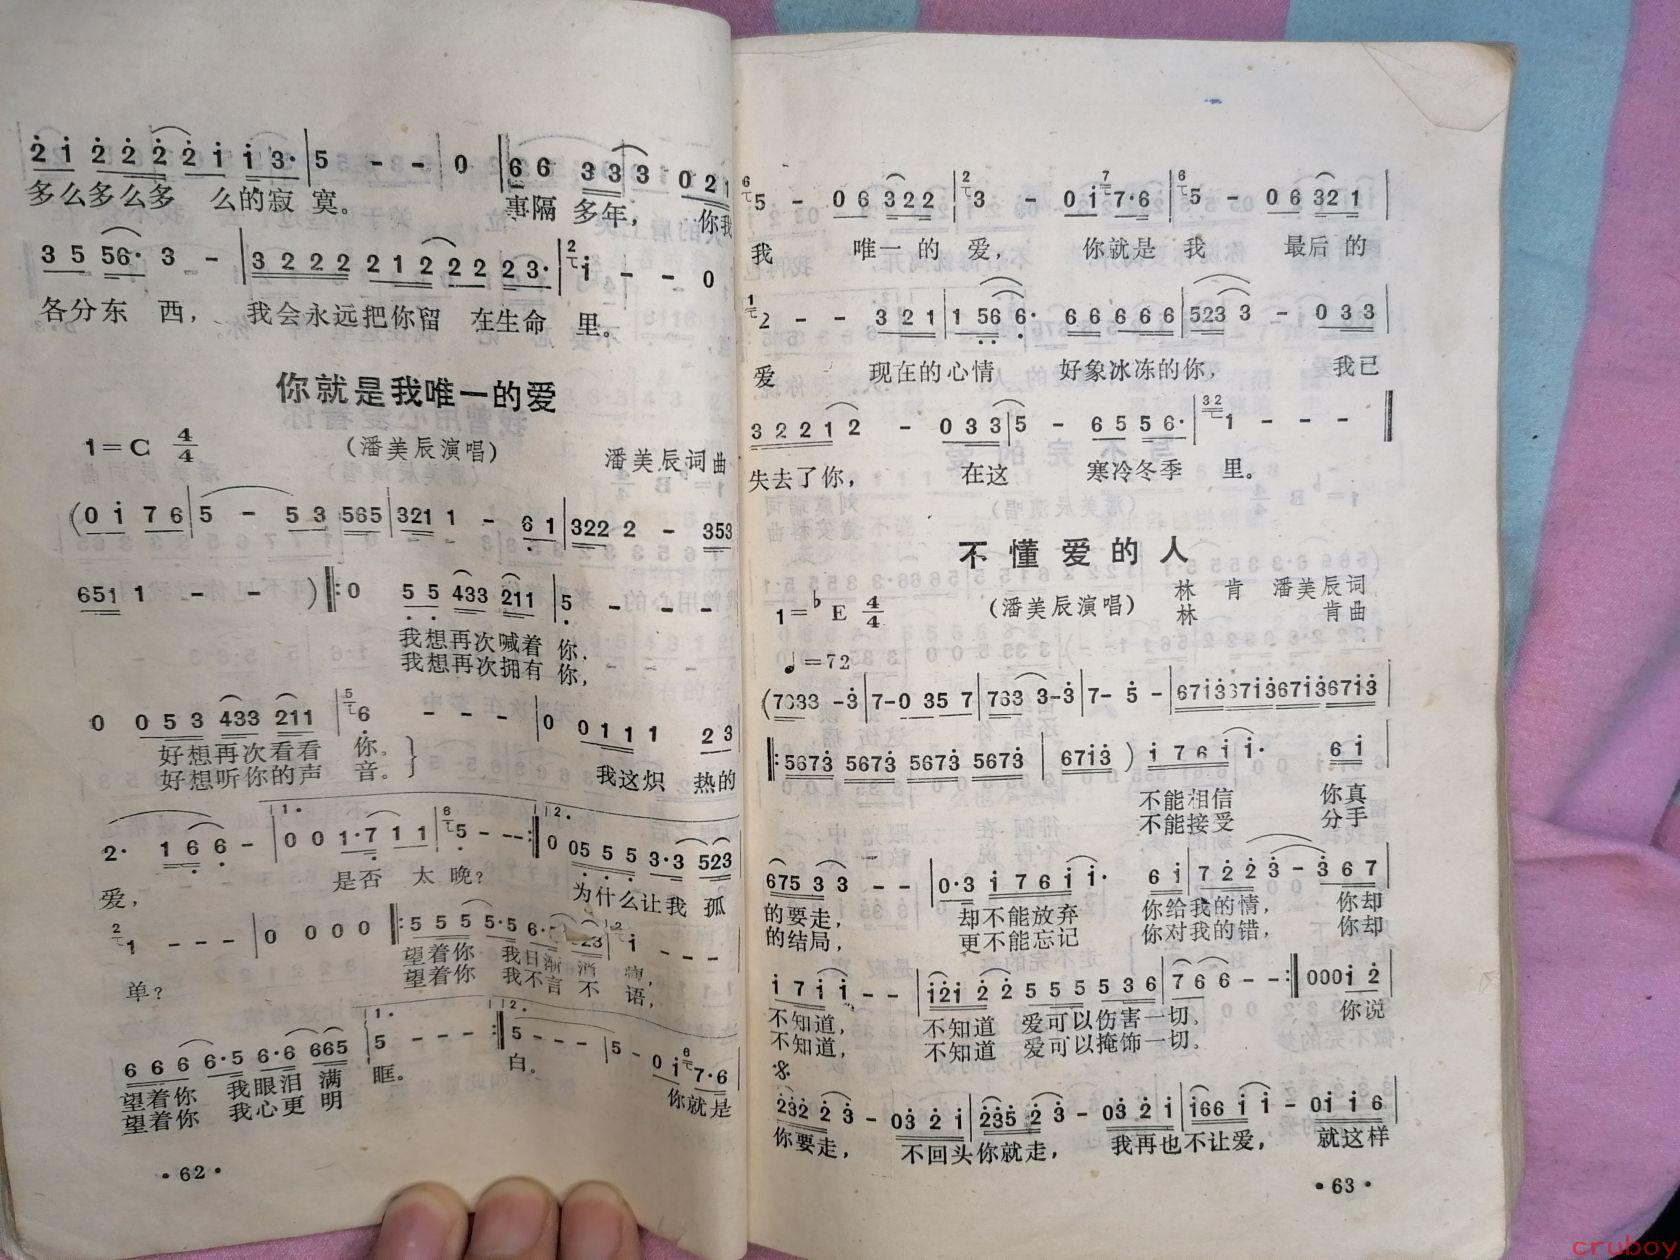 2 1 2 2 2 2 1 1 3· | 5 - - 0 | 6 6 3 3 3 0 2 1
多么多么多 么的寂 寞。 事隔 多年， 你我
3 5 56· 3 - | 3 2 2 2 2 1 2 2 2 2 3· | 1 - - 0
各分东 西， 我会永远把你留 在生命 里。
你就是我唯一的爱
1=C 4/4 （潘美辰演唱） 潘美辰词曲
(0 1 7 6 | 5 - 5 3 565 | 321 1 - 6 1 | 322 2 - 353
651 1 - - ) ‖: 0 5 5 433 211 | 5 - - -
我想再次喊着 你，
我想再次拥有 你，
0 0 5 3 433 211 | 6 - - - | 0 0 1 1 1 2 3
好想再次看看 你。 我这炽 热的
好想听你的声 音。
1. 2.
2· 1 6 6 - | 0 0 1·7 1 1 | 5 - - - :‖ 0 05 5 5 3·3 523
爱， 是否 太 晚？ 为什么让我 孤
1 - - - | 0 0 0 0 ‖: 5 5 5 5·5 6· | 1 - - -
单？ 望着你 我日渐 消 瘦，
望着你 我不言 不 语，
1. 2.
6 6 6 6·5 6·6 665 | 5 - - - :‖ 5 - - - | 5 - 0 1 7·6
望着你 我眼泪 满 眶。 白。 你就是
望着你 我心更 明
·62·
5 - 0 6 322 | 3 - 0 1 7·6 | 5 - 0 6 32 1
我 唯一的 爱， 你就是 我 最后的
2 - - 3 2 1 | 1 56 6· 6 6 6 6 6 | 523 3 - 0 3 3
爱 现在的心情 好象冰冻的你， 我已
3 2 2 1 2 - 0 3 3 | 5 - 6 5 5 6· | 1 - - - ‖
失去了你， 在这 寒冷冬季 里。
不懂爱的人
1=♭E 4/4 （潘美辰演唱） 林 肯 潘美辰词
林 肯曲
♩=72
(7633 -3 | 7-0 35 7 | 763 3-3 | 7- 5 - | 6713 6713 6713 6713
‖: 5673 5673 5673 5673 | 6713 ) 1 7 6 1 1· 6 1
不能相信 你真
不能接受 分手
675 3 3 - - | 0·3 1 7 6 1 1· 6 1 | 7 2 2 3 - 3 6 7
的要走， 却不能放弃 你给我的情， 你却
的结局， 更不能忘记 你对我的错， 你却
1 7 1 1 - - | 121 2 2 5 5 5 5 3 6 | 7 6 6 - - :‖ 0001 2
不知道， 不知道 爱可以伤害一切。 你说
不知道， 不知道 爱可以掩饰一切。
𝄋
232 2 3 - 03 2 1 | 235 2 3 - 03 2 1 | 166 1 1 - 01 1 6
你要走， 不回头你就走， 我再也不让爱， 就这样
·63·
cruboy